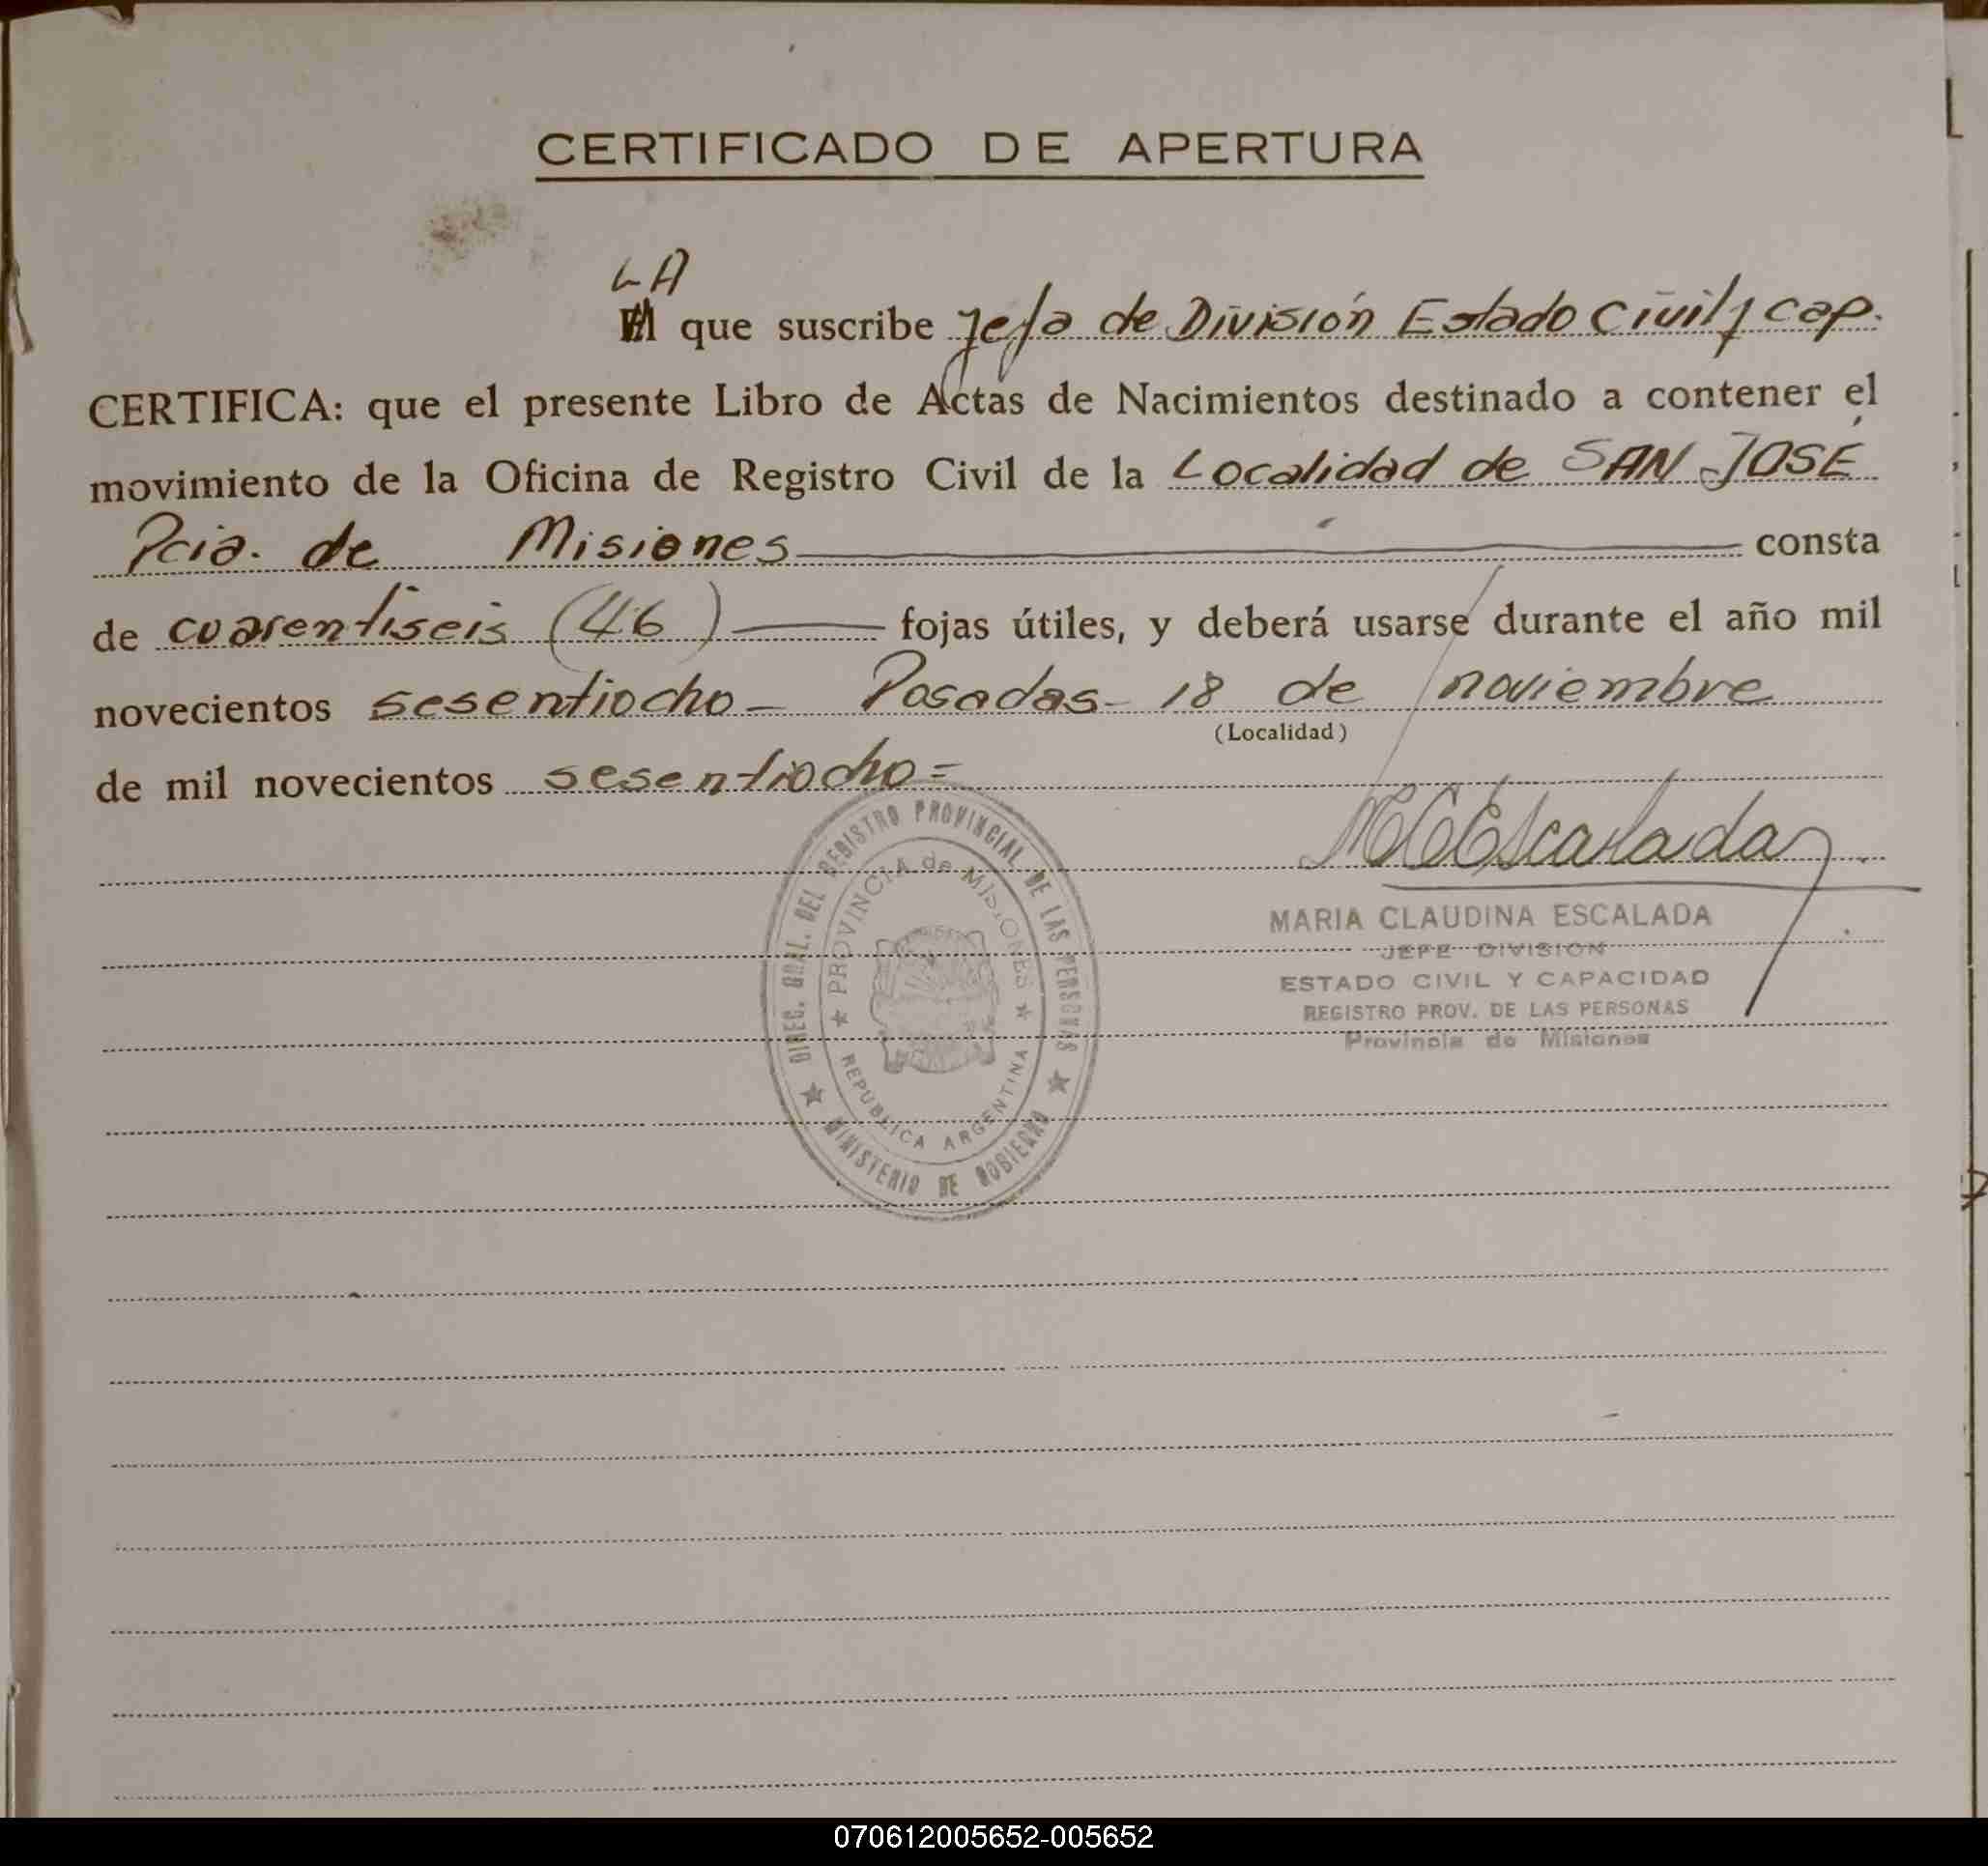 CERTIFICADO DE APERTURA
LA
El que suscribe Jefa de División Estado Civil y cap.
CERTIFICA: que el presente Libro de Actas de Nacimientos destinado a contener el
movimiento de la Oficina de Registro Civil de la Localidad de SAN JOSÉ
Pcia. de Misiones consta
de cuarentiseis (46) fojas útiles, y deberá usarse durante el año mil
novecientos sesentiocho - Posadas - 18 de noviembre
(Localidad)
de mil novecientos sesentiocho =
MCEscalada
MARIA CLAUDINA ESCALADA
JEFE DIVISION
ESTADO CIVIL Y CAPACIDAD
REGISTRO PROV. DE LAS PERSONAS
Provincia de Misiones
DIREC. GRAL. DEL REGISTRO PROVINCIAL DE LAS PERSONAS
★ MINISTERIO DE GOBIERNO ★
★ PROVINCIA de MISIONES ★
REPUBLICA ARGENTINA
070612005652-005652